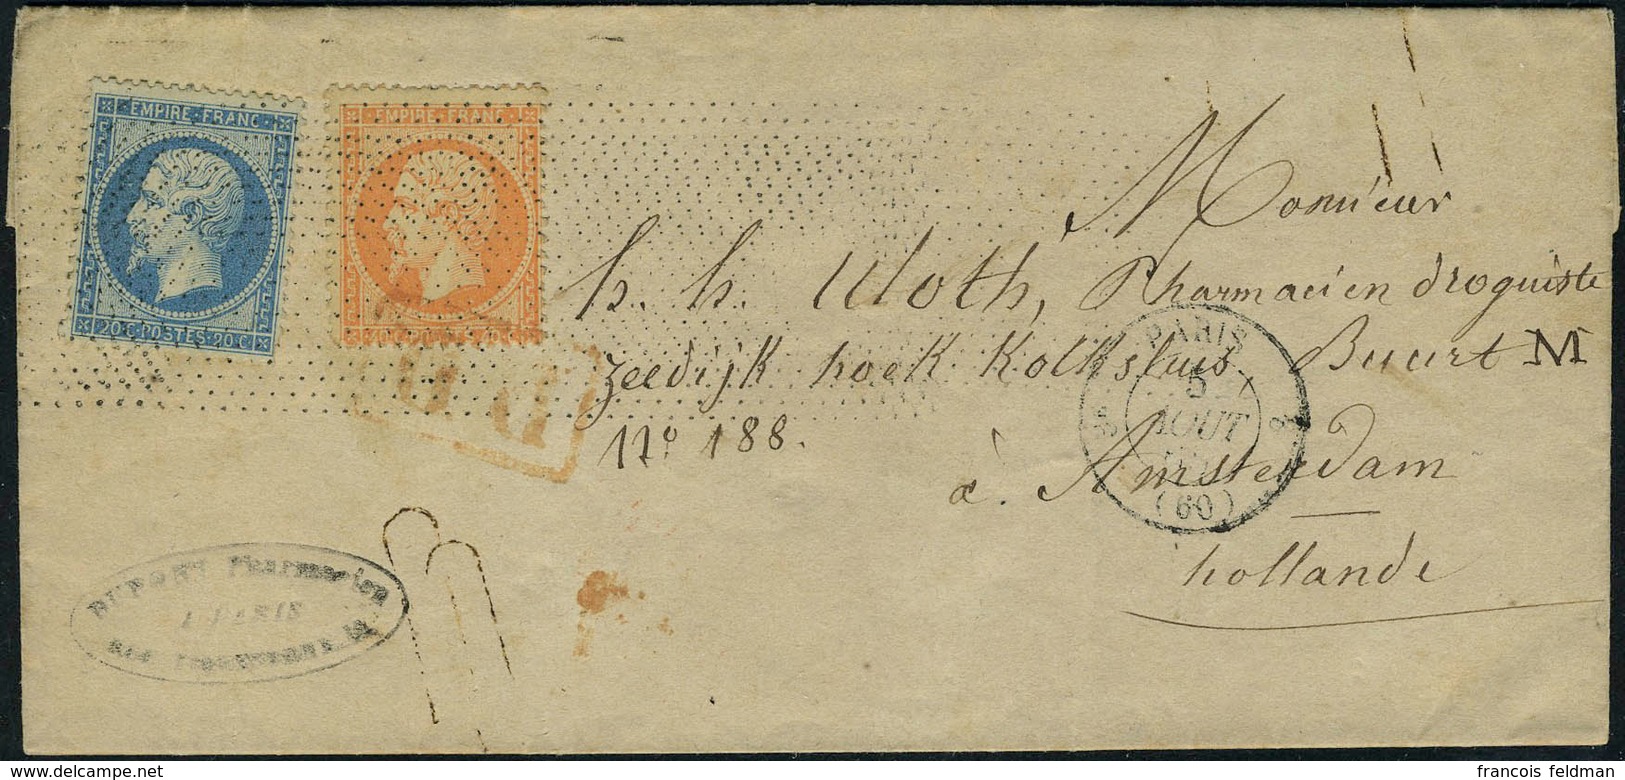 EMPIRE FRANC
20 C POSTES 20 C
EMPIRE FRANC
Monsieur
h. h. Uloth, Pharmacien droguiste
zeedijk hoek Kolksluis Buurt M
N° 188.
à. Amsterdam
hollande
PARIS
5
AOUT
(60)
P.D.
Pharmacien
A PARIS
francois feldman